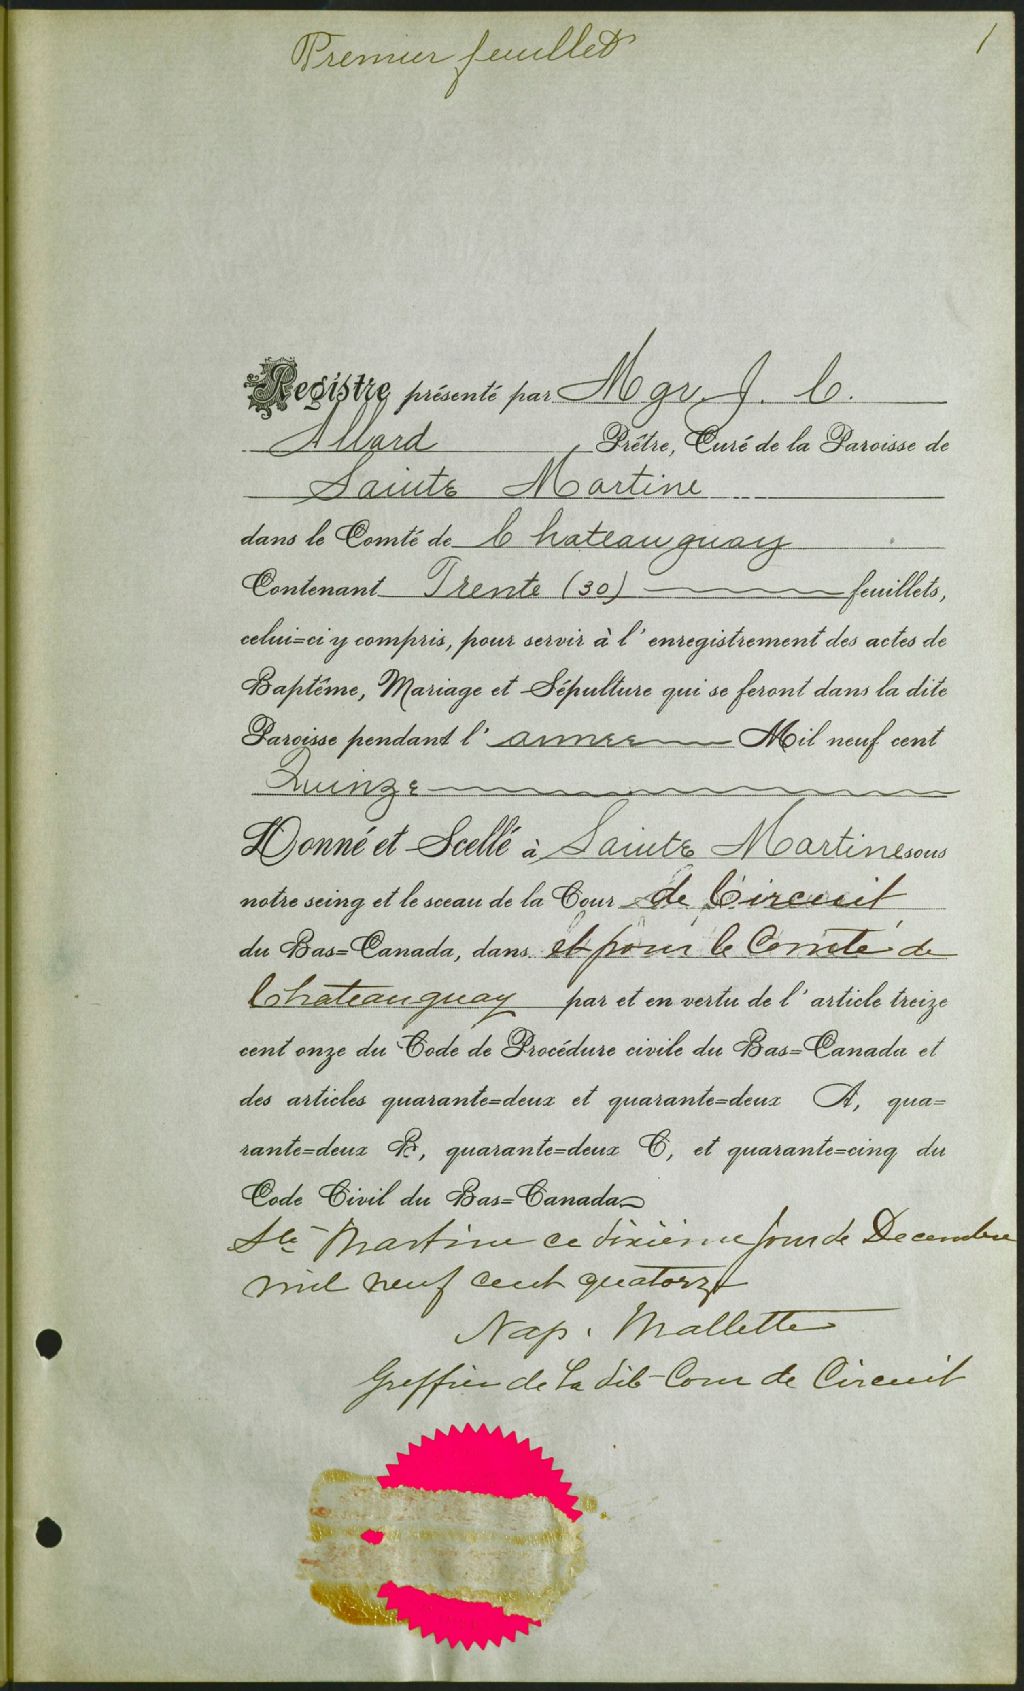 Premier feuillet
1
Registre présenté par Mgr. J. C.
Allard Prêtre, Curé de la Paroisse de
Sainte Martine
dans le Comté de Chateauguay
Contenant Trente (30) feuillets,
celui=ci y compris, pour servir à l' enregistrement des actes de
Baptême, Mariage et Sépulture qui se feront dans la dite
Paroisse pendant l' année Mil neuf cent
Quinze
Donné et Scellé à Sainte Martine sous
notre seing et le sceau de la Cour de Circuit
du Bas=Canada, dans et pour le Comté de
Chateauguay par et en vertu de l' article treize
cent onze du Code de Procédure civile du Bas=Canada et
des articles quarante=deux et quarante=deux A, qua=
rante=deux B, quarante=deux C, et quarante=cinq du
Code Civil du Bas=Canada
Ste Martine ce dixième jour de Decembre
mil neuf cent quatorze
Nap. Mallette
Greffier de la dite Cour de Circuit